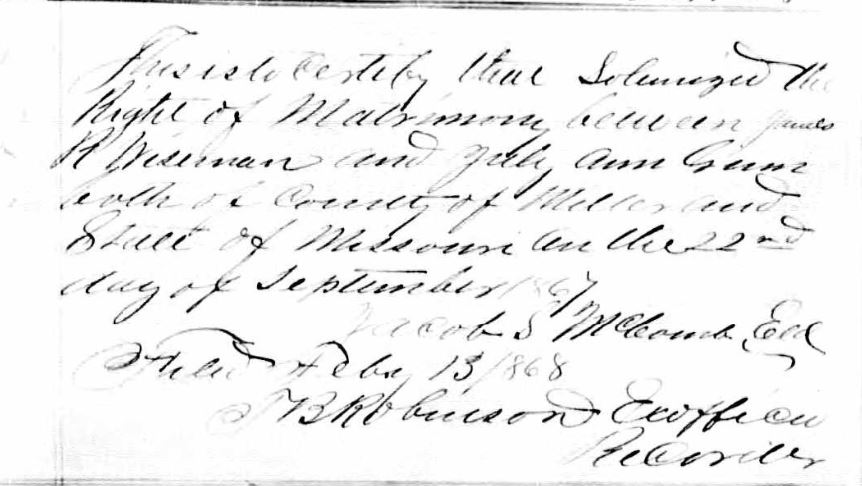 This is to Certify that Solemnized the
Right of Matrimony between James
R Wiseman and July Ann Gum
both of County of Miller and
State of Missouri on the 22nd
day of September 1867
Jacob S McComb Eld
Filed Feby 13 1868
J B Robinson Exofficio
Recorder